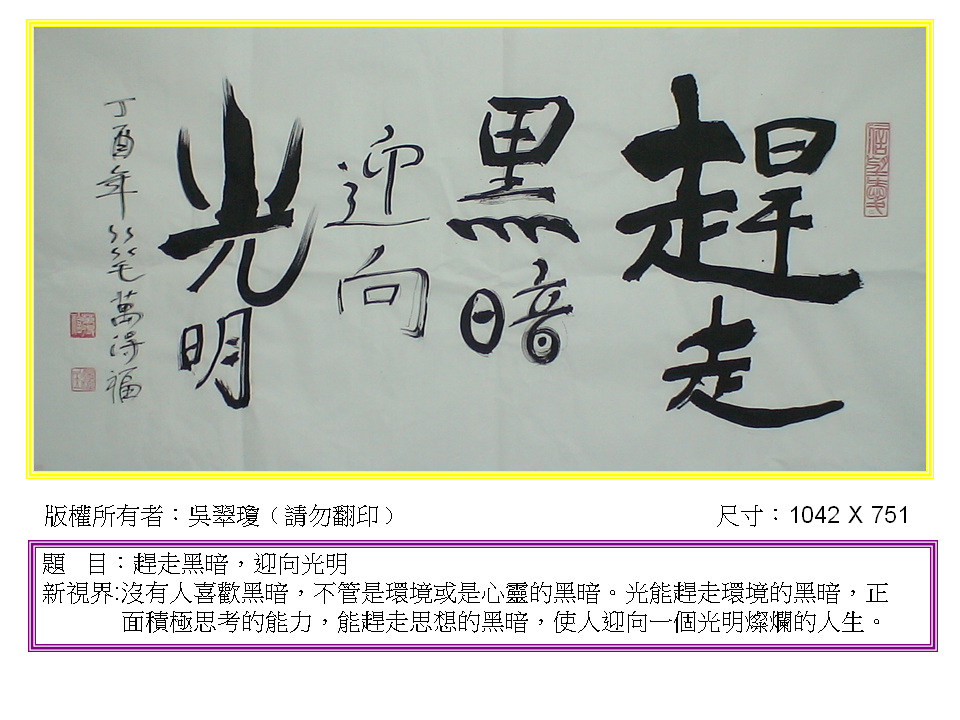 趕走
黑暗
迎向
光明
丁酉年笔萬得福
版權所有者：吳翠瓊（請勿翻印）
尺寸：1042 X 751
題　目：趕走黑暗，迎向光明
新視界:沒有人喜歡黑暗，不管是環境或是心靈的黑暗。光能趕走環境的黑暗，正
面積極思考的能力，能趕走思想的黑暗，使人迎向一個光明燦爛的人生。